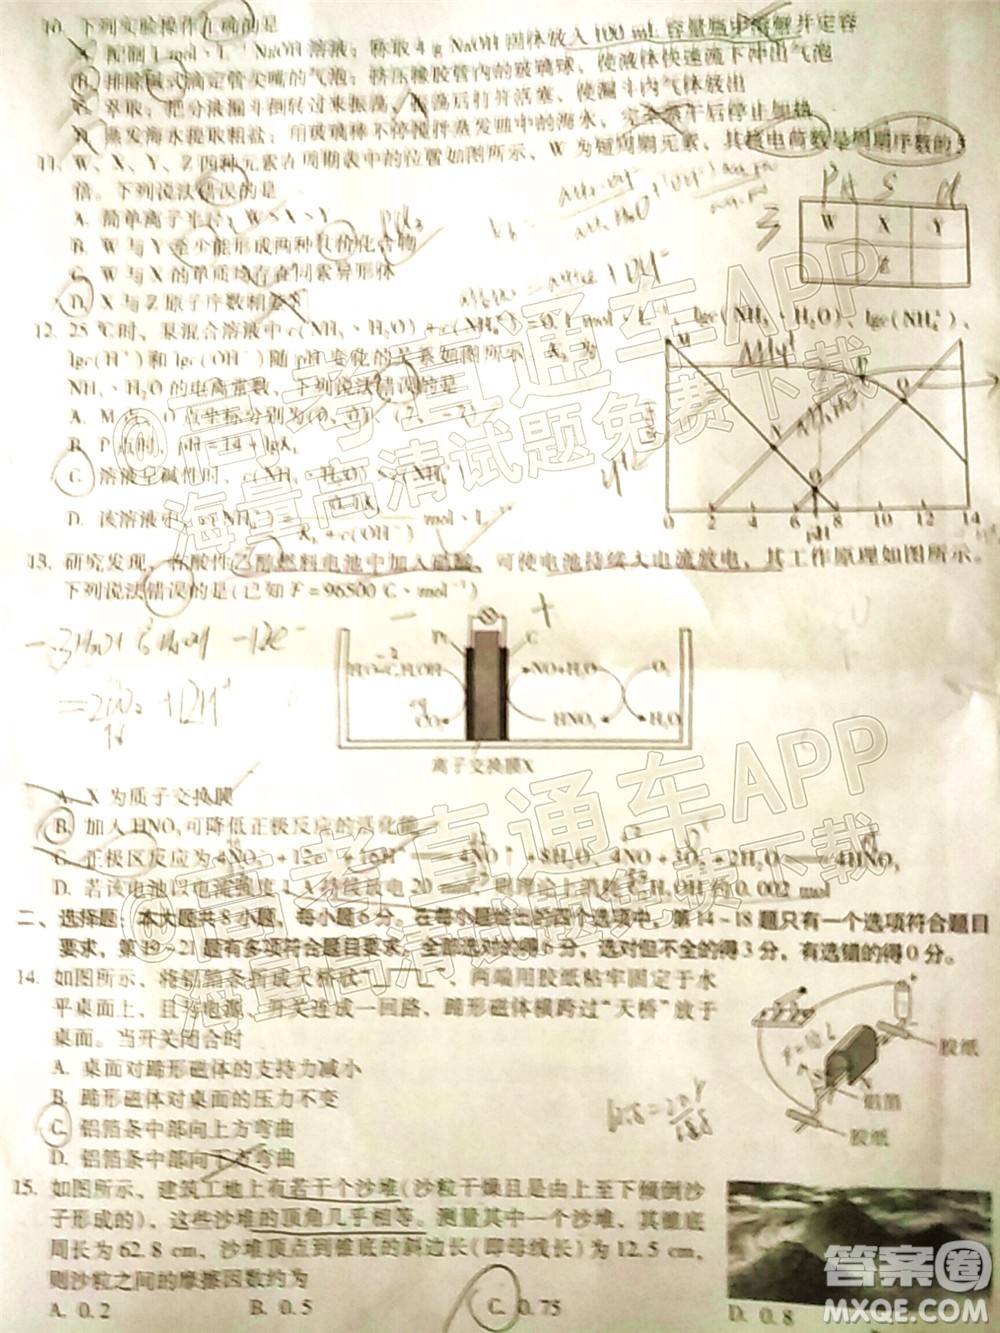 10. 下列实验操作正确的是
A. 配制1 mol·L⁻¹ NaOH溶液：称取4 g NaOH固体放入100 mL容量瓶中溶解并定容
B. 排除碱式滴定管尖嘴的气泡：挤压橡胶管内的玻璃球，使液体快速流下冲出气泡
C. 萃取：把分液漏斗倒转振荡，振荡后打开活塞，使漏斗内气体放出
D. 蒸发海水提取粗盐：用玻璃棒不停搅拌蒸发皿中的海水，完全蒸干后停止加热
11. W、X、Y、Z四种元素在周期表中的位置如图所示，W为短周期元素，其核电荷数是周期序数的5
倍。下列说法错误的是
A. 简单离子半径：W>X>Y
B. W与Y至少能形成两种共价化合物
C. W与X的单质均存在同素异形体
D. X与Z原子序数相差8
W X Y
Z
12. 25 ℃时，某混合溶液中c(NH₃·H₂O)+c(NH₄⁺)=0.1 mol·L⁻¹，lgc(NH₃·H₂O)、lgc(NH₄⁺)、
lgc(H⁺)和lgc(OH⁻)随pH变化的关系如图所示，K_b为
NH₃·H₂O的电离常数，下列说法错误的是
A. M点、O点坐标分别为(0，0)、(7，-7)
B. P点时，pH=14+lgK_b
C. 溶液呈碱性时，c(NH₃·H₂O)
D. 该溶液中，c(NH₄⁺)=0.1K_b/(K_b+c(OH⁻)) mol·L⁻¹
M P Q N O
0 2 4 6 8 10 12 14
pH
13. 研究发现，在酸性乙醇燃料电池中加入硝酸，可使电池持续大电流放电，其工作原理如图所示。
下列说法错误的是(已知F=96500 C·mol⁻¹)
Pt C
H₂O C₂H₅OH NO+H₂O O₂
CO₂ HNO₃ H₂O
离子交换膜X
A. X为质子交换膜
B. 加入HNO₃可降低正极反应的活化能
C. 正极区反应为4NO₃⁻+12e⁻+16H⁺══4NO↑+8H₂O、4NO+3O₂+2H₂O══4HNO₃
D. 若该电池以电流强度1 A持续放电20 min，则理论上消耗C₂H₅OH约0.002 mol
二、选择题：本大题共8小题，每小题6分。在每小题给出的四个选项中，第14~18题只有一个选项符合题目
要求，第19~21题有多项符合题目要求。全部选对的得6分，选对但不全的得3分，有选错的得0分。
14. 如图所示，将铝箔条折成天桥状，两端用胶纸粘牢固定于水
平桌面上，且与电源、开关连成一回路，蹄形磁体横跨过“天桥”放于
桌面。当开关闭合时
A. 桌面对蹄形磁体的支持力减小
B. 蹄形磁体对桌面的压力不变
C. 铝箔条中部向上方弯曲
D. 铝箔条中部向下方弯曲
胶纸
铝箔
胶纸
15. 如图所示，建筑工地上有若干个沙堆(沙粒干燥且是由上至下倾倒沙
子形成的)，这些沙堆的顶角几乎相等。测量其中一个沙堆，其锥底
周长为62.8 cm，沙堆顶点到锥底的斜边长(即母线长)为12.5 cm，
则沙粒之间的摩擦因数约为
A. 0.2 B. 0.5 C. 0.75 D. 0.8
@高考直通车APP
海量高清试题免费下载
@高考直通车APP
海量高清试题免费下载
答案圈
MXQE.COM